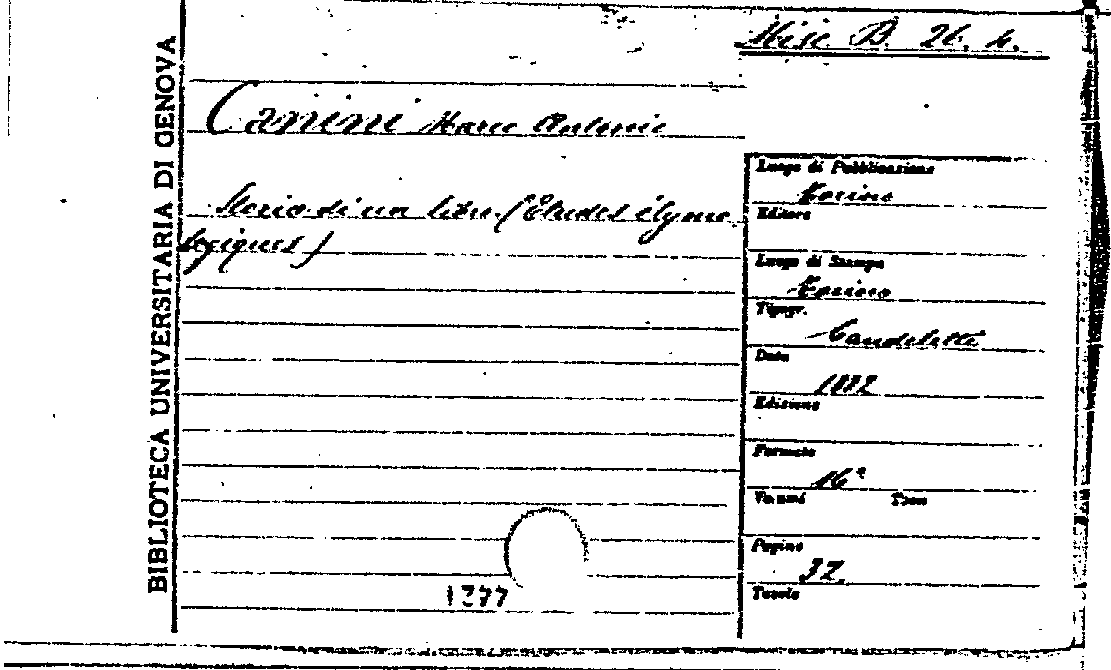 BIBLIOTECA UNIVERSITARIA DI GENOVA
Misc. B. 26. 4.
Canini Marco Antonio
Storia di un libro (Études étymo
logiques)
Luogo di Pubblicazione
Torino
Editore
Luogo di Stampa
Torino
Tipogr.
Candeletti
Data
1882
Edizione
Formato
16°
Volumi Tomo
Pagine
32.
Tavole
1377